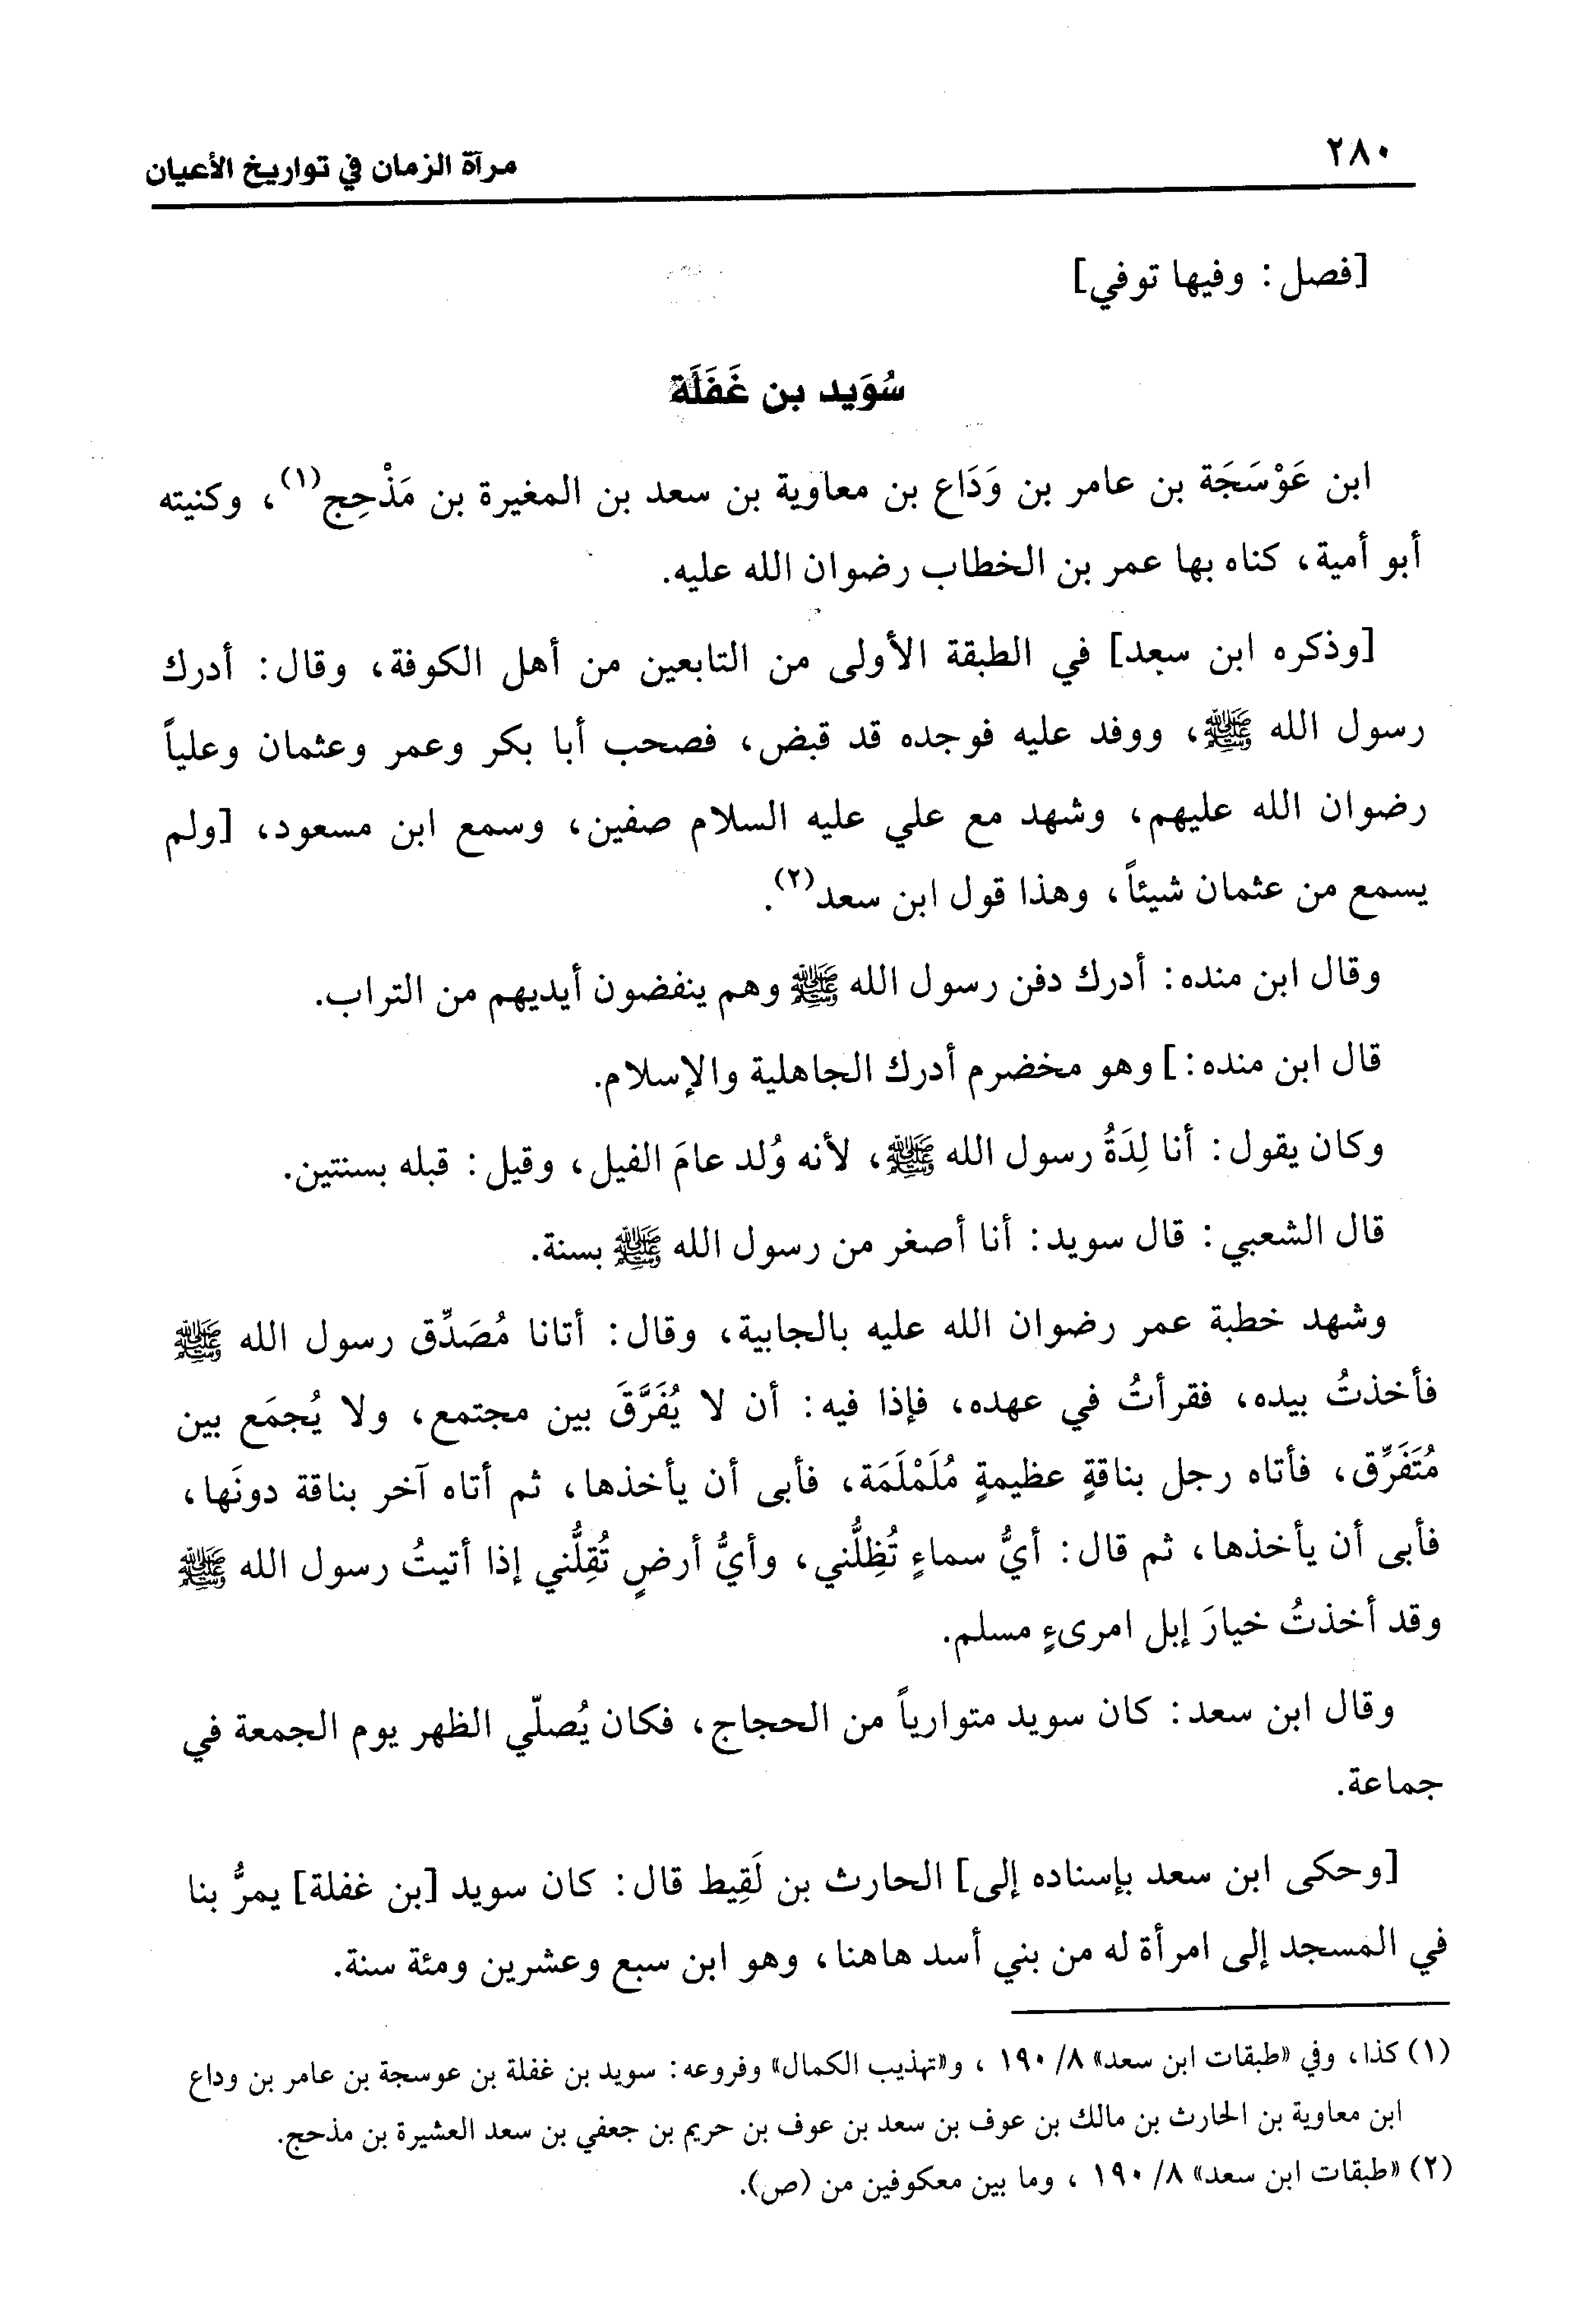 ٢٨٠
مرآة الزمان في تواريخ الأعيان
[فصل: وفيها توفي]
سُوَيد بن غَفَلَة
ابن عَوْسَجَة بن عامر بن وَدَاع بن معاوية بن سعد بن المغيرة بن مَذْحِج(١)، وكنيته
أبو أمية، كناه بها عمر بن الخطاب رضوان الله عليه.
[وذكره ابن سعد] في الطبقة الأولى من التابعين من أهل الكوفة، وقال: أدرك
رسول الله ﷺ، ووفد عليه فوجده قد قبض، فصحب أبا بكر وعمر وعثمان وعلياً
رضوان الله عليهم، وشهد مع علي عليه السلام صفين، وسمع ابن مسعود، [ولم
يسمع من عثمان شيئاً، وهذا قول ابن سعد(٢).
وقال ابن منده: أدرك دفن رسول الله ﷺ وهم ينفضون أيديهم من التراب.
قال ابن منده:] وهو مخضرم أدرك الجاهلية والإسلام.
وكان يقول: أنا لِدَةُ رسول الله ﷺ، لأنه وُلد عامَ الفيل، وقيل: قبله بسنتين.
قال الشعبي: قال سويد: أنا أصغر من رسول الله ﷺ بسنة.
وشهد خطبة عمر رضوان الله عليه بالجابية، وقال: أتانا مُصَدِّق رسول الله ﷺ
فأخذتُ بيده، فقرأتُ في عهده، فإذا فيه: أن لا يُفَرَّقَ بين مجتمع، ولا يُجمَع بين
مُتَفَرِّق، فأتاه رجل بناقةٍ عظيمةٍ مُلَمْلَمَة، فأبى أن يأخذها، ثم أتاه آخر بناقة دونَها،
فأبى أن يأخذها، ثم قال: أيُّ سماءٍ تُظِلُّني، وأيُّ أرضٍ تُقِلُّني إذا أتيتُ رسول الله ﷺ
وقد أخذتُ خيارَ إبل امرىءٍ مسلم.
وقال ابن سعد: كان سويد متوارياً من الحجاج، فكان يُصلّي الظهر يوم الجمعة في
جماعة.
[وحكى ابن سعد بإسناده إلى] الحارث بن لَقِيط قال: كان سويد [بن غفلة] يمرُّ بنا
في المسجد إلى امرأة له من بني أسد هاهنا، وهو ابن سبع وعشرين ومئة سنة.
(١) كذا، وفي «طبقات ابن سعد» ٨/ ١٩٠ ، و«تهذيب الكمال» وفروعه: سويد بن غفلة بن عوسجة بن عامر بن وداع
ابن معاوية بن الحارث بن مالك بن عوف بن سعد بن عوف بن حريم بن جعفي بن سعد العشيرة بن مذحج.
(٢) «طبقات ابن سعد» ٨/ ١٩٠ ، وما بين معكوفين من (ص).